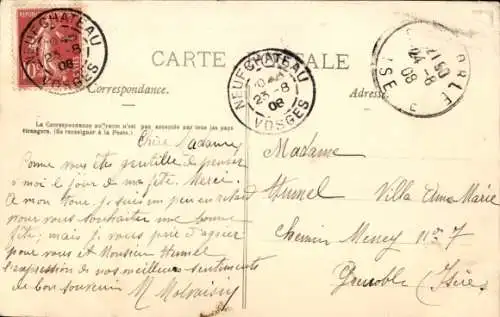 NEUFCHATEAU
23-8
08
VOSGES
CARTE POSTALE
NEUFCHATEAU
23-8
08
VOSGES
24-8
08
Correspondance.
Adresse
La Correspondance au recto n'est pas acceptée par tous les pays
étrangers. (Se renseigner à la Poste.)
Chère Madame
Comme vous êtes gentille de penser
à moi le jour de ma fête. Merci.
A mon tour je suis un peu en retard
pour vous souhaiter une bonne
fête; mais je vous prie d'agréer
pour vous et Monsieur Humel
l'expression de nos meilleurs sentiments
de bon souvenir M
Madame
Humel Villa Anna Marie
Chemin Meney n° 7
Grenoble (Isère)